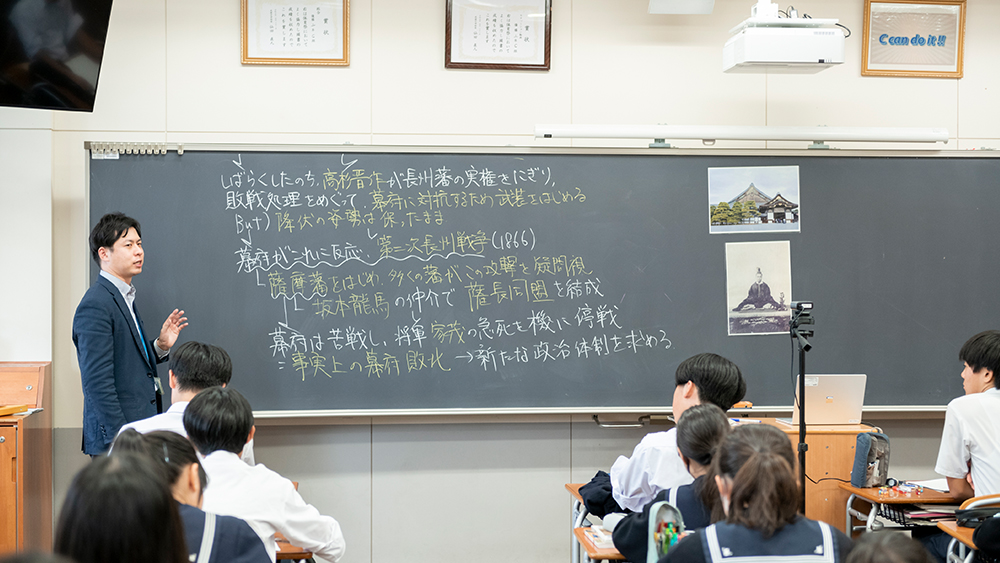 Ccan do it!!
しばらくしたのち、高杉晋作が長州藩の実権をにぎり、
敗戦処理をめぐって、幕府に対抗するため武装をはじめる
But) 降伏の姿勢は保ったまま
幕府がこれに反応、第二次長州戦争(1866)
薩摩藩をはじめ、多くの藩がこの攻撃を疑問視
坂本龍馬の仲介で 薩長同盟を結成
幕府は苦戦し、将軍家茂の急死を機に停戦
=事実上の幕府敗北 →新たな政治体制を求める